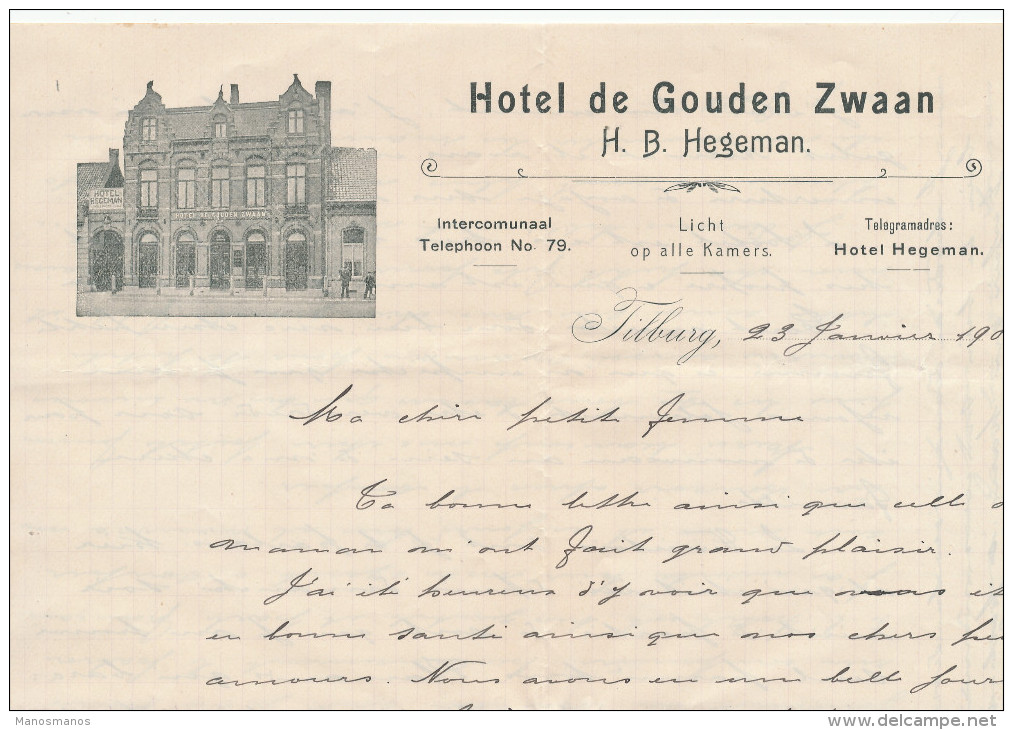 Hotel de Gouden Zwaan
H. B. Hegeman.
HOTEL
HEGEMAN
HOTEL DE GOUDEN ZWAAN
Intercomunaal
Telephoon No. 79.
Licht
op alle Kamers.
Telegramadres:
Hotel Hegeman.
Tilburg, 23 Janvier 190
Ma chère petite femme
Ta bonne lettre ainsi que celle d
maman m'ont fait grand plaisir.
J'ai été heureux d'y voir que vous êt
en bonne santé ainsi que nos chers pe
amours. Nous avons eu une belle jour
Manosmanos
delcampe.net